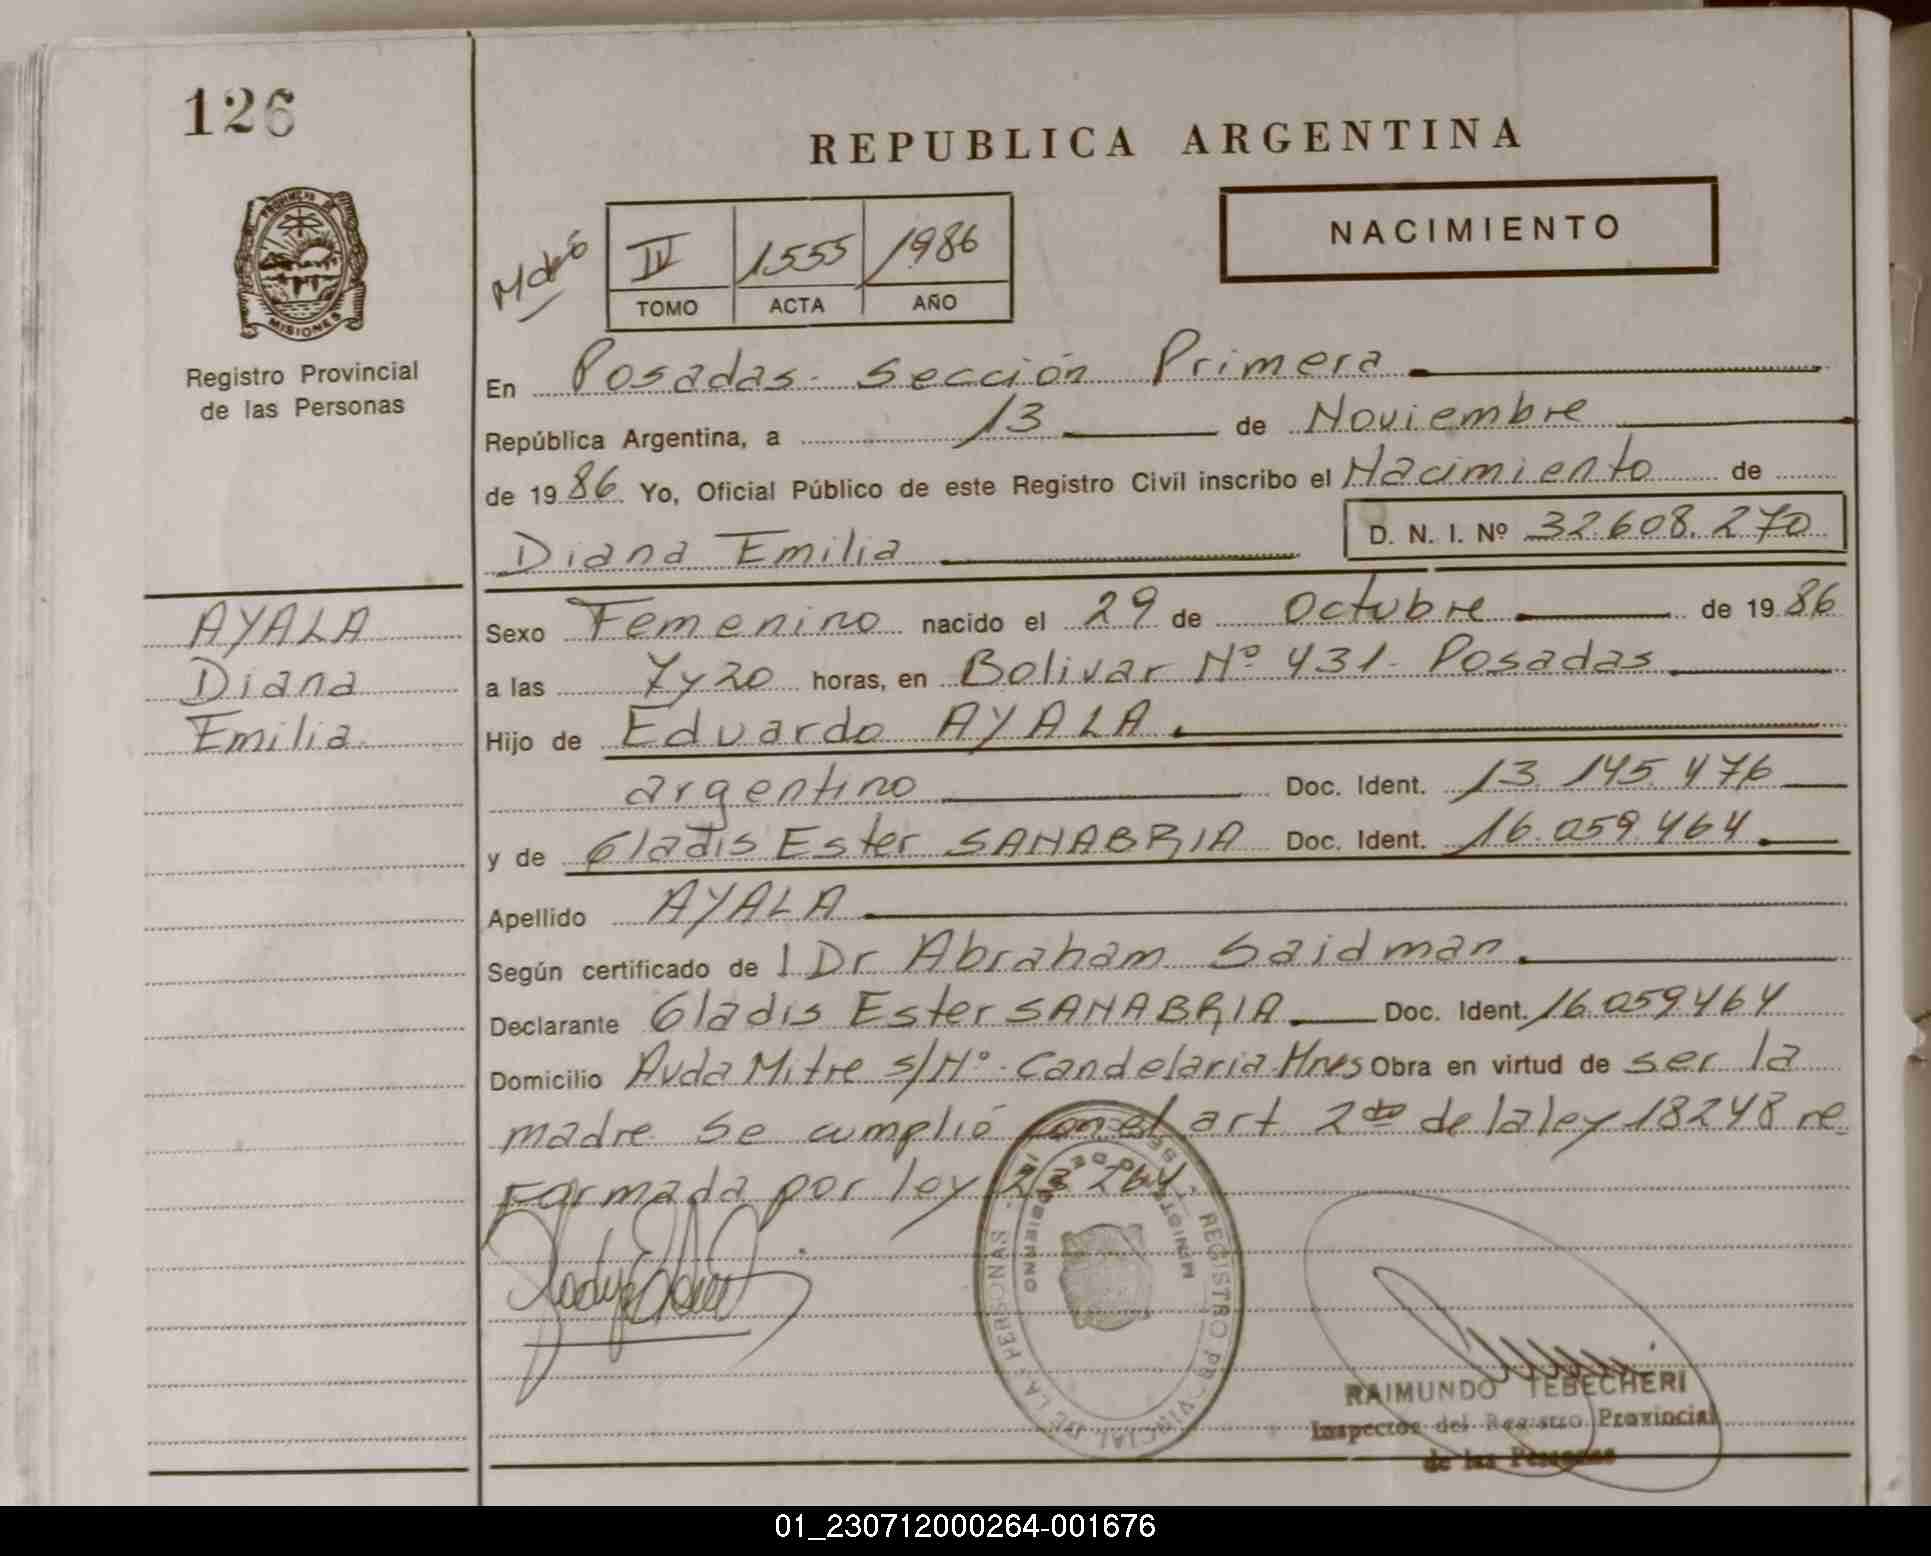 126
REPUBLICA ARGENTINA
NACIMIENTO
IV 1555 1986
TOMO ACTA AÑO
PROVINCIA DE
MISIONES
Registro Provincial
de las Personas
En Posadas - Sección Primera
República Argentina, a 13 de Noviembre
de 1986 Yo, Oficial Público de este Registro Civil inscribo el Nacimiento de
Diana Emilia D. N. I. Nº 32.608.270
AYALA
Diana
Emilia.
Sexo Femenino nacido el 29 de Octubre de 1986
a las 7 y 20 horas, en Bolivar Nº 431 - Posadas
Hijo de Eduardo AYALA
argentino Doc. Ident. 13.145.476
y de Gladis Ester SANABRIA Doc. Ident. 16.059.464
Apellido AYALA
Según certificado de l Dr Abraham Saidman
Declarante Gladis Ester SANABRIA Doc. Ident. 16.059.464
Domicilio Avda Mitre s/Nº - Candelaria - Mnes Obra en virtud de ser la
madre Se cumplió con el art 2do de la ley 18248 re
formada por ley 23264
REGISTRO PROVINCIAL DE LAS PERSONAS
MINISTERIO DE GOBIERNO
RAIMUNDO TEBECHERI
Inspector del Registro Provincial
de las Personas
01_230712000264-001676